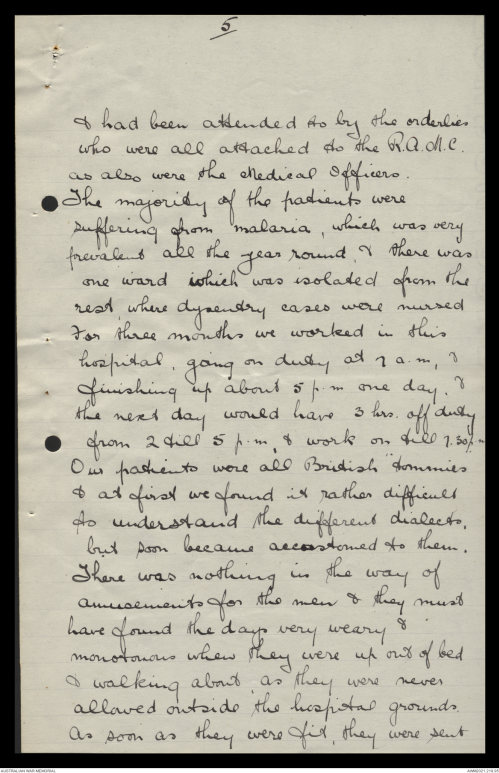 5
& had been attended to by the orderlies
who were all attached to the R.A.M.C.
as also were the Medical Officers.
The majority of the patients were
suffering from malaria, which was very
prevalent all the year round, & there was
one ward which was isolated from the
rest, where dysentry cases were nursed
For three months we worked in this
hospital, going on duty at 7 a.m, &
finishing up about 5 p.m one day, &
the next day would have 3 hrs. off duty
from 2 till 5 p.m, & work on till 7.30 p.m
Our patients were all British "Tommies
& at first we found it rather difficult
to understand the different dialects,
but soon became accustomed to them.
There was nothing in the way of
amusements for the men & they must
have found the days very weary &
monotonous when they were up out of bed
& walking about, as they were never
allowed outside the hospital grounds.
As soon as they were fit, they were sent
AUSTRALIAN WAR MEMORIAL